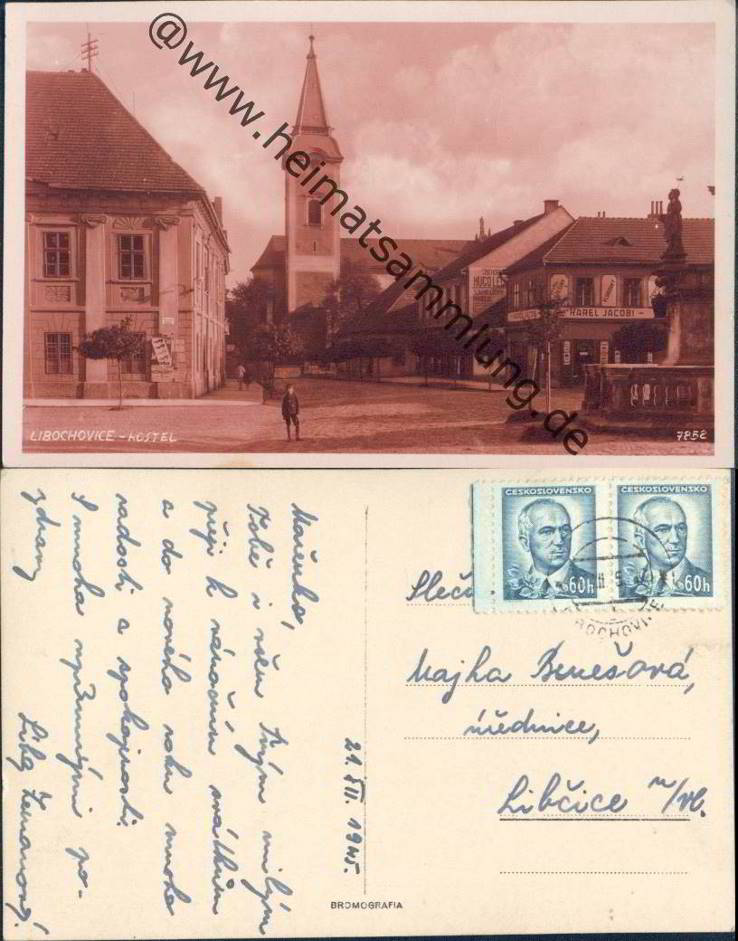 @www.heimatsammlung.de
KAREL JACOBI
LIBOCHOVICE - KOSTEL
7858
Mařenko,
Tobě i všem Tvým milým
přeji k vánočním svátkům
a do nového roku mnoho
radosti a spokojnosti.
S mnoha upřímnými po-
zdravy
Liba Zemanová.
21. XII. 1945.
BROMOGRAFIA
ČESKOSLOVENSKO
60h
ČESKOSLOVENSKO
60h
Majka Benešová,
úřednice,
Libčice n/Vl.